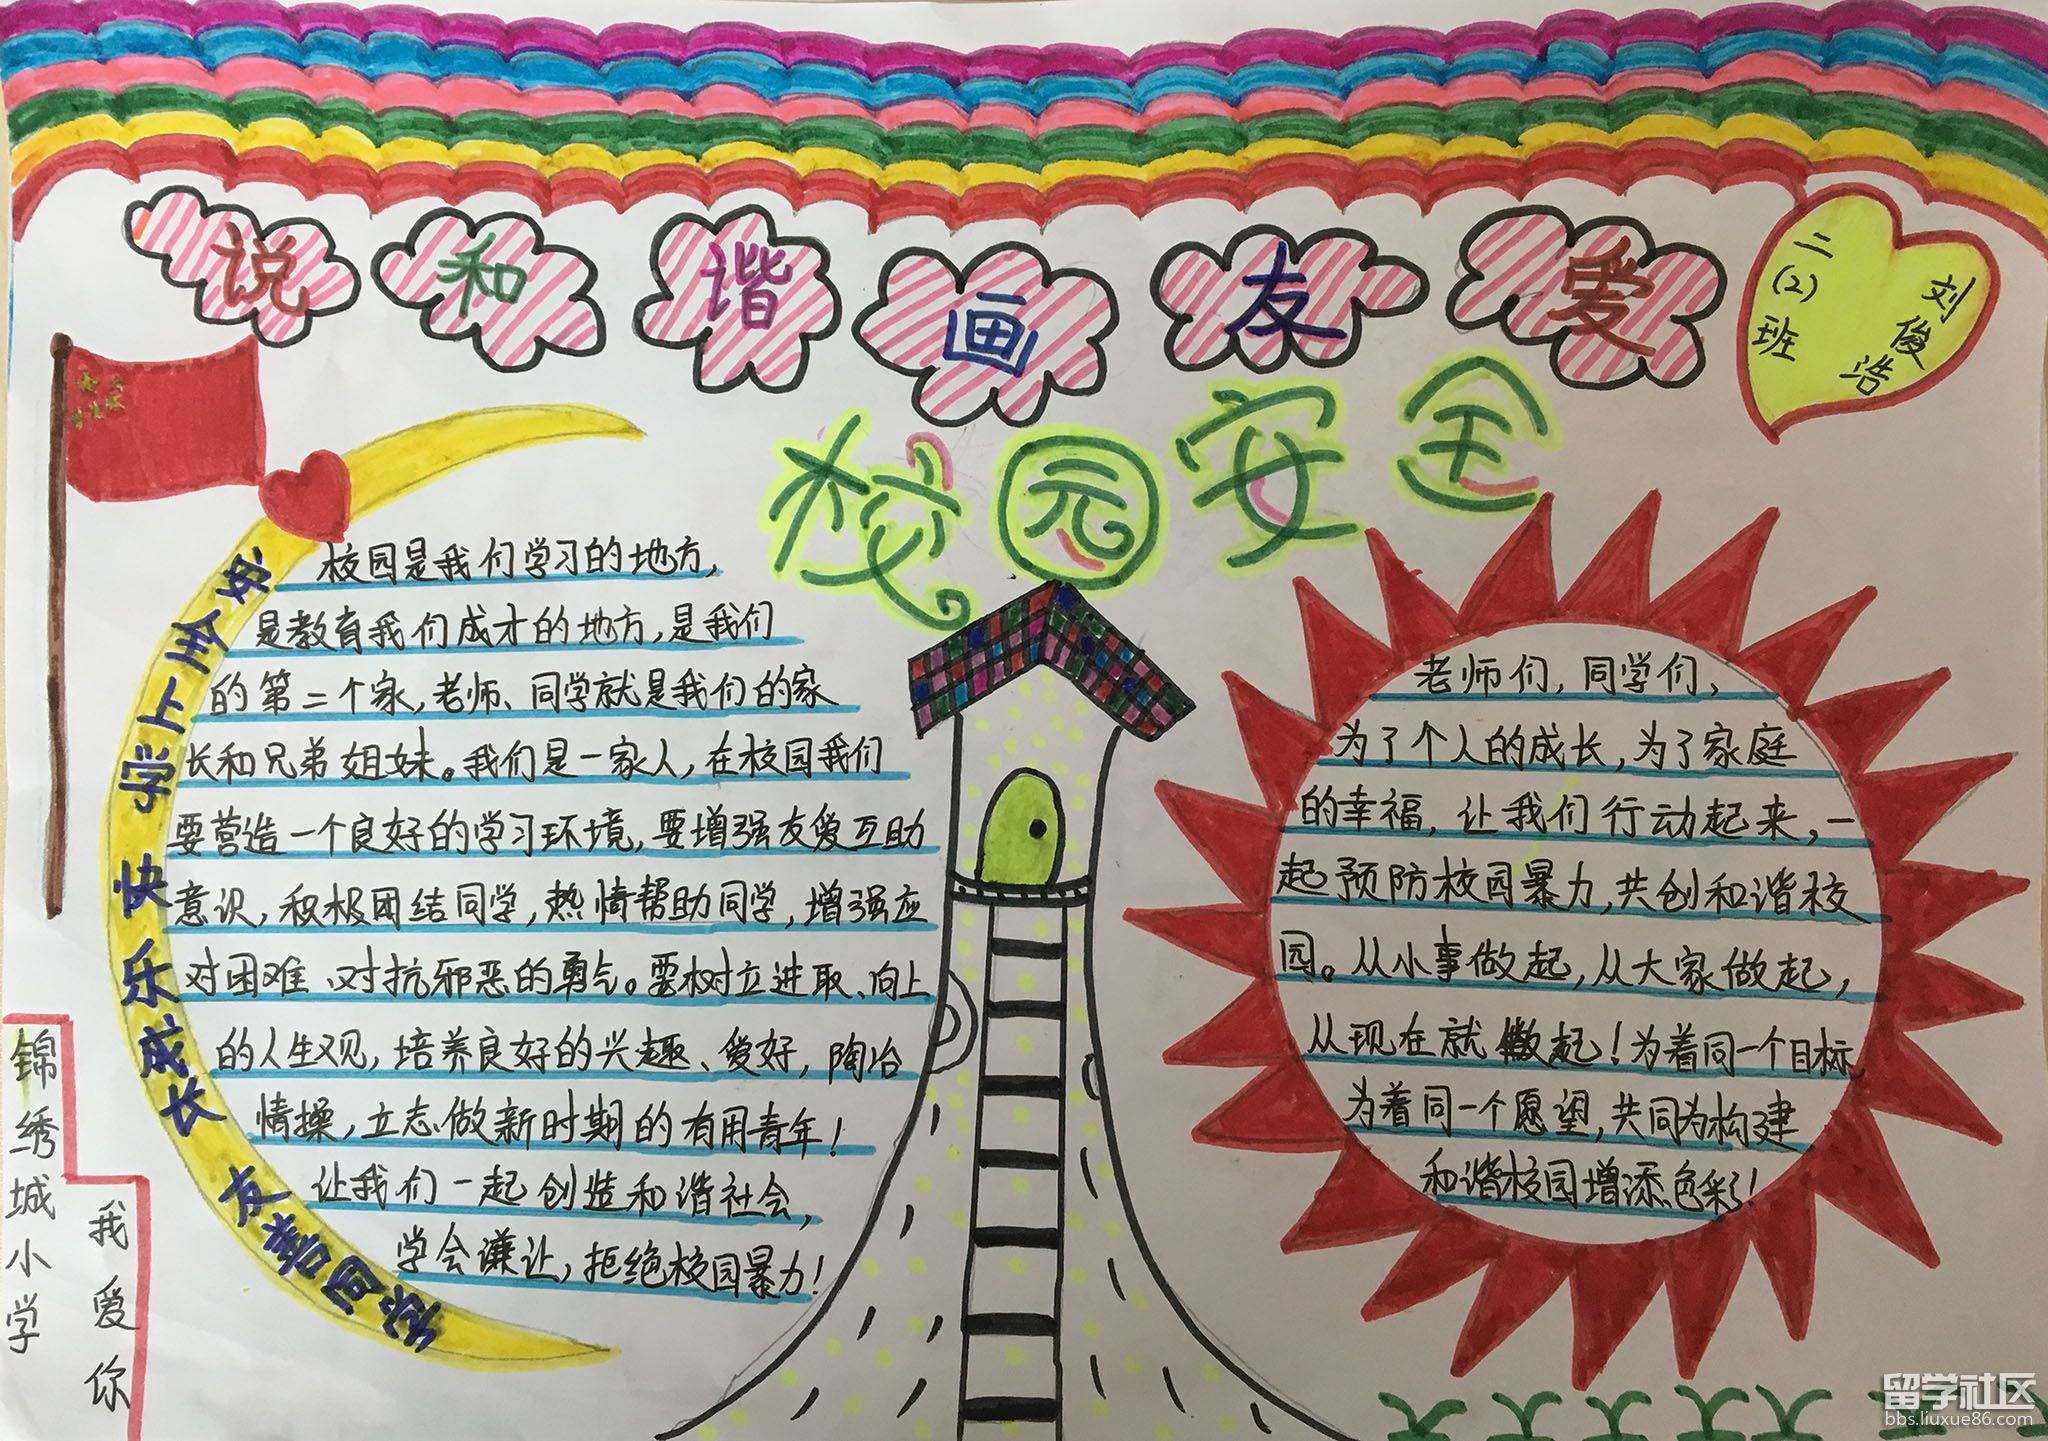 说和谐画友爱
二(2)班
刘俊浩
校园安全
安全上学 快乐成长 友善同学
校园是我们学习的地方,
是教育我们成才的地方,是我们
的第二个家,老师、同学就是我们的家
长和兄弟姐妹。我们是一家人,在校园我们
要营造一个良好的学习环境,要增强友爱互助
意识,积极团结同学,热情帮助同学,增强应
对困难、对抗邪恶的勇气。要树立进取、向上
的人生观,培养良好的兴趣、爱好,陶冶
情操,立志做新时期的有用青年!
让我们一起创造和谐社会,
学会谦让,拒绝校园暴力!
老师们,同学们、
为了个人的成长,为了家庭
的幸福,让我们行动起来,一
起预防校园暴力,共创和谐校
园。从小事做起,从大家做起,
从现在就做起!为着同一个目标,
为着同一个愿望,共同为构建
和谐校园增添色彩!
锦绣城小学
我爱你
留学社区
bbs.liuxue86.com